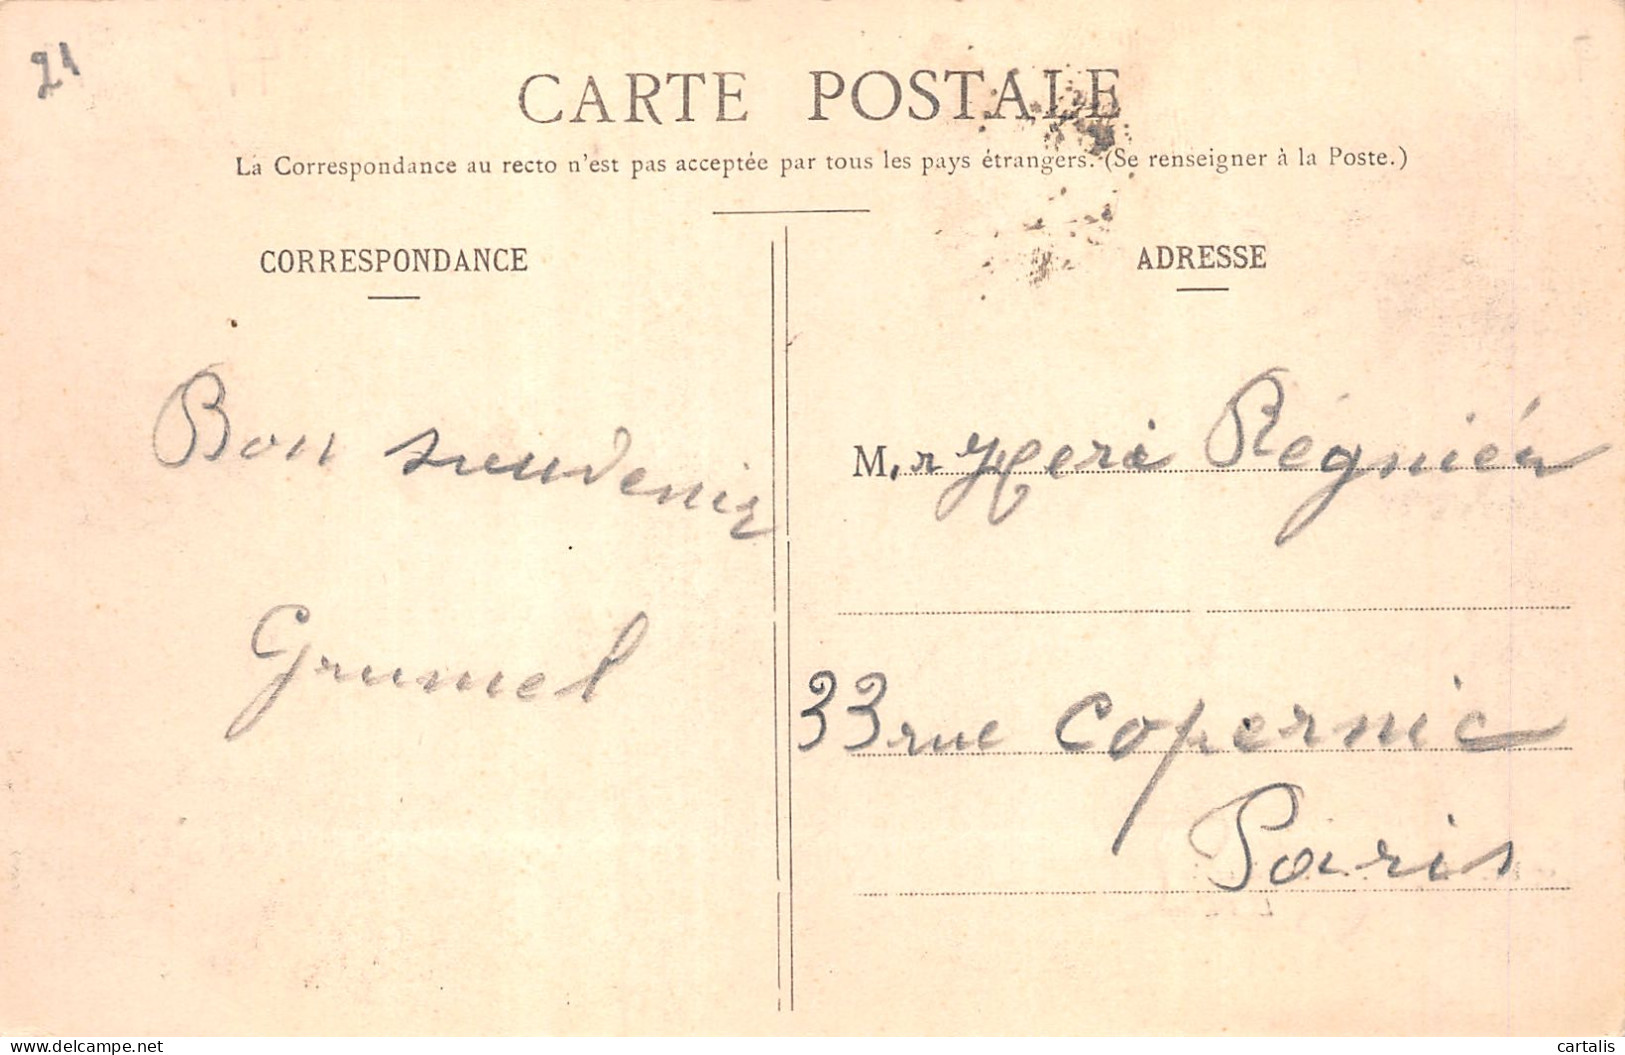 21
CARTE POSTALE
La Correspondance au recto n'est pas acceptée par tous les pays étrangers. (Se renseigner à la Poste.)
CORRESPONDANCE
ADRESSE
Bon suudenir
Grumel
M.r Heri Régniér
33 rue Copernic
Paris
www.delcampe.net
cartalis